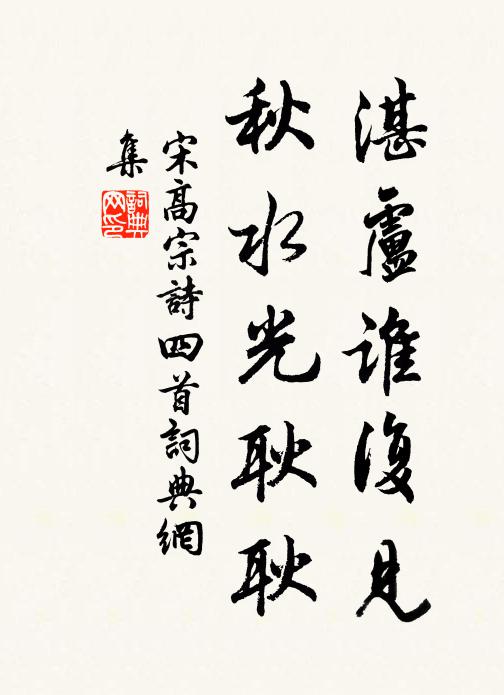 湛盧誰復見
秋水光耿耿
宋高宗詩四首詞典網
集
詞典
网印